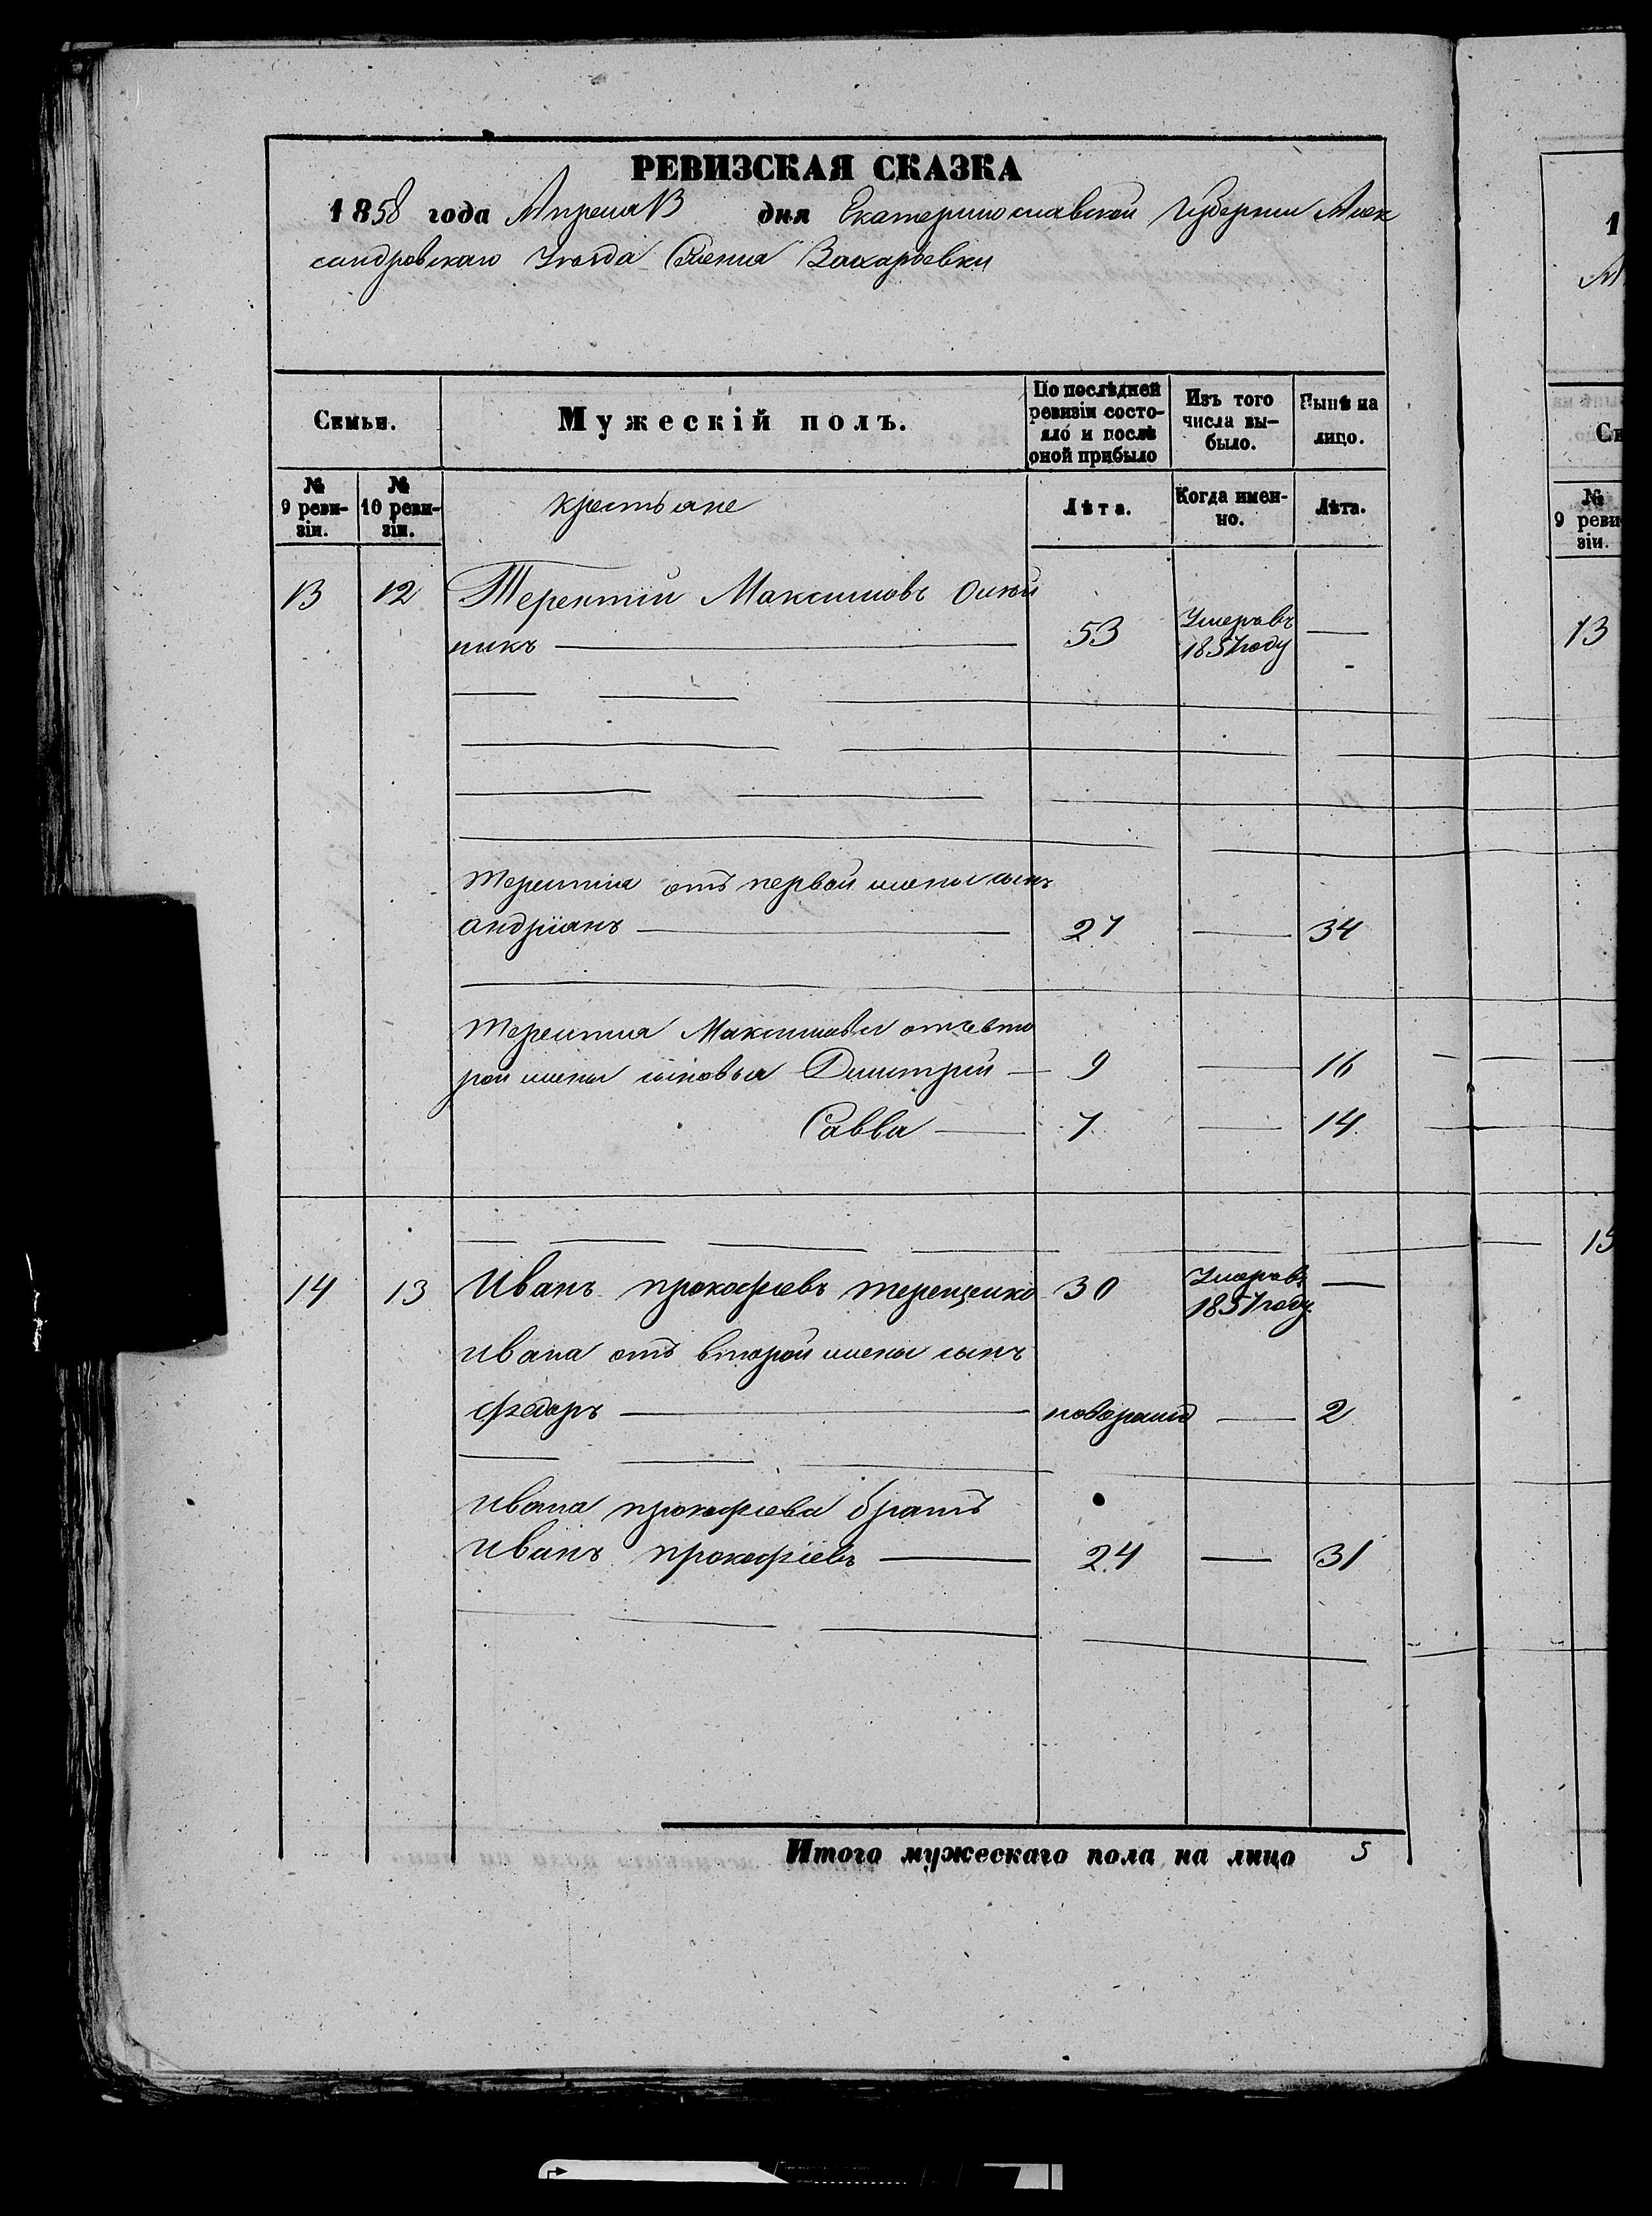 РЕВИЗСКАЯ СКАЗКА
1858 года Апреля 13 дня Екатеринославской Губернии Алек
сандровскаго Уезда Селения Захарьевки
Семьи.
Мужескій полъ.
По послѣдней ревизіи состояло и послѣ оной прибыло
Изъ того числа выбыло.
Нынѣ на лицо.
№ 9 ревизіи.
№ 10 ревизіи.
крестьяне
Лѣта.
Когда именно.
Лѣта.
13 12 Терентий Максимовъ
никъ 53 Умеръ въ 1857 году —
Терентия отъ первой жены сынъ
андріянъ 27 — 34
Терентия Максимова отъ вто
рой жены сыновья Димитрий — 9 — 16
Савва — 7 — 14
14 13 Иванъ прокофіевъ терещенко 30 Умеръ въ 1857 году —
ивана отъ второй жены сынъ
федоръ — новорожд — 2
ивана прокофіева братъ
иванъ прокофіевъ — 24 — 31
Итого мужескаго пола на лицо 5
1
№
9 реви
зіи.
13
15